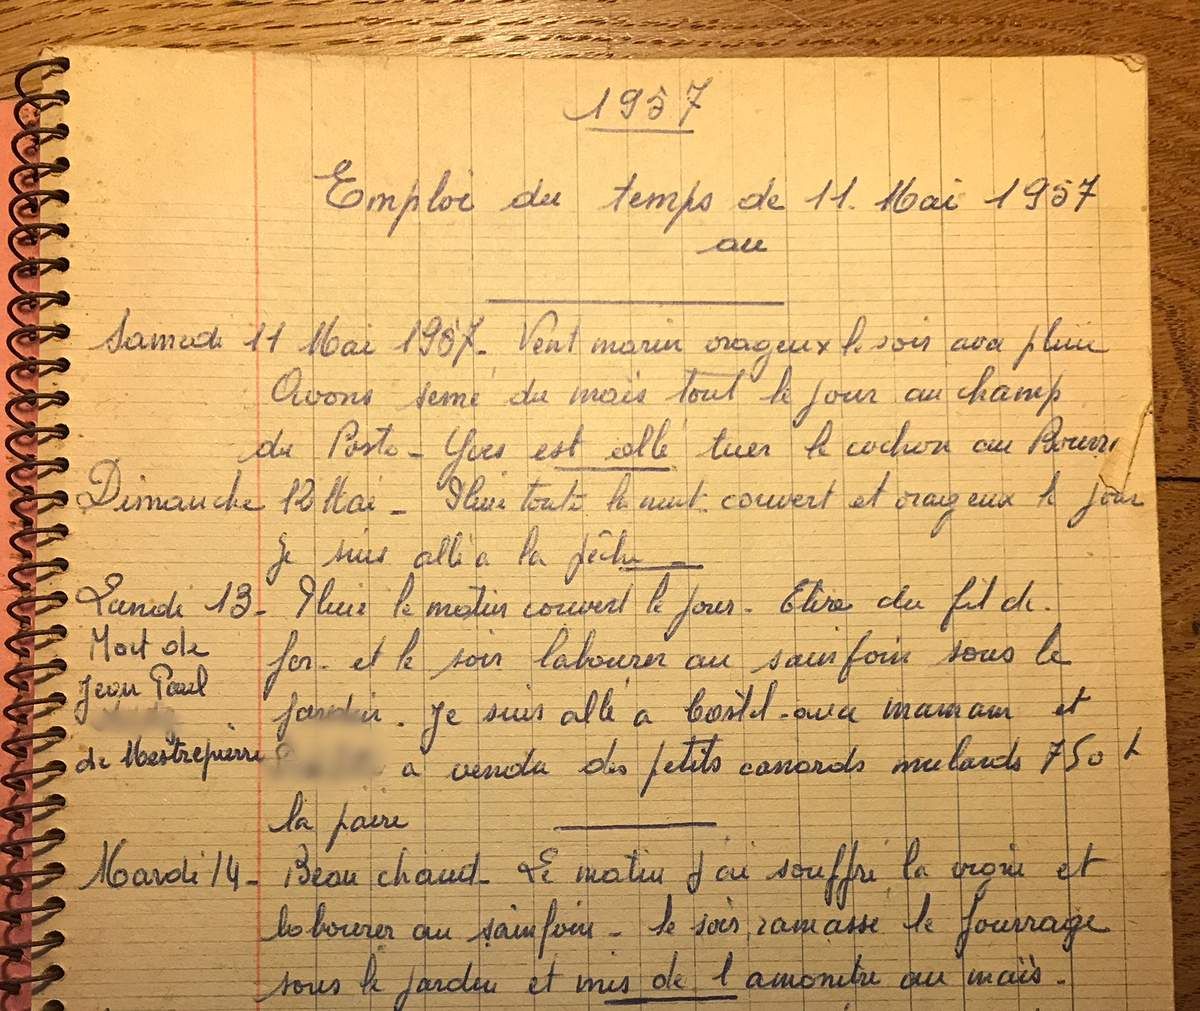 1957
Emploi du temps de 11. Mai 1957
au
Samedi 11 Mai 1957 - Vent marin orageux le soir avec pluie
Avons semé du maïs tout le jour au champ
du Poste - Yves est allé tuer le cochon au
Dimanche 12 Mai - Pluie toute la nuit couvert et orageux le jour
je suis allé a la pêche
Lundi 13 - Pluie le matin couvert le jour - Etiré du fil de
Mort de
fer - et le soir labourer au sainfoin sous le
Jean Paul
jardin - Je suis allé a Costel avec maman et
de Mestrepierre
a vendu des petits canards mulards 750 f
la paire
Mardi 14 - Beau chaud - Le matin j'ai souffré la vigne et
labourer au sainfoin - le soir ramassé le fourrage
sous le jardin et mis de l amonitre au maïs -